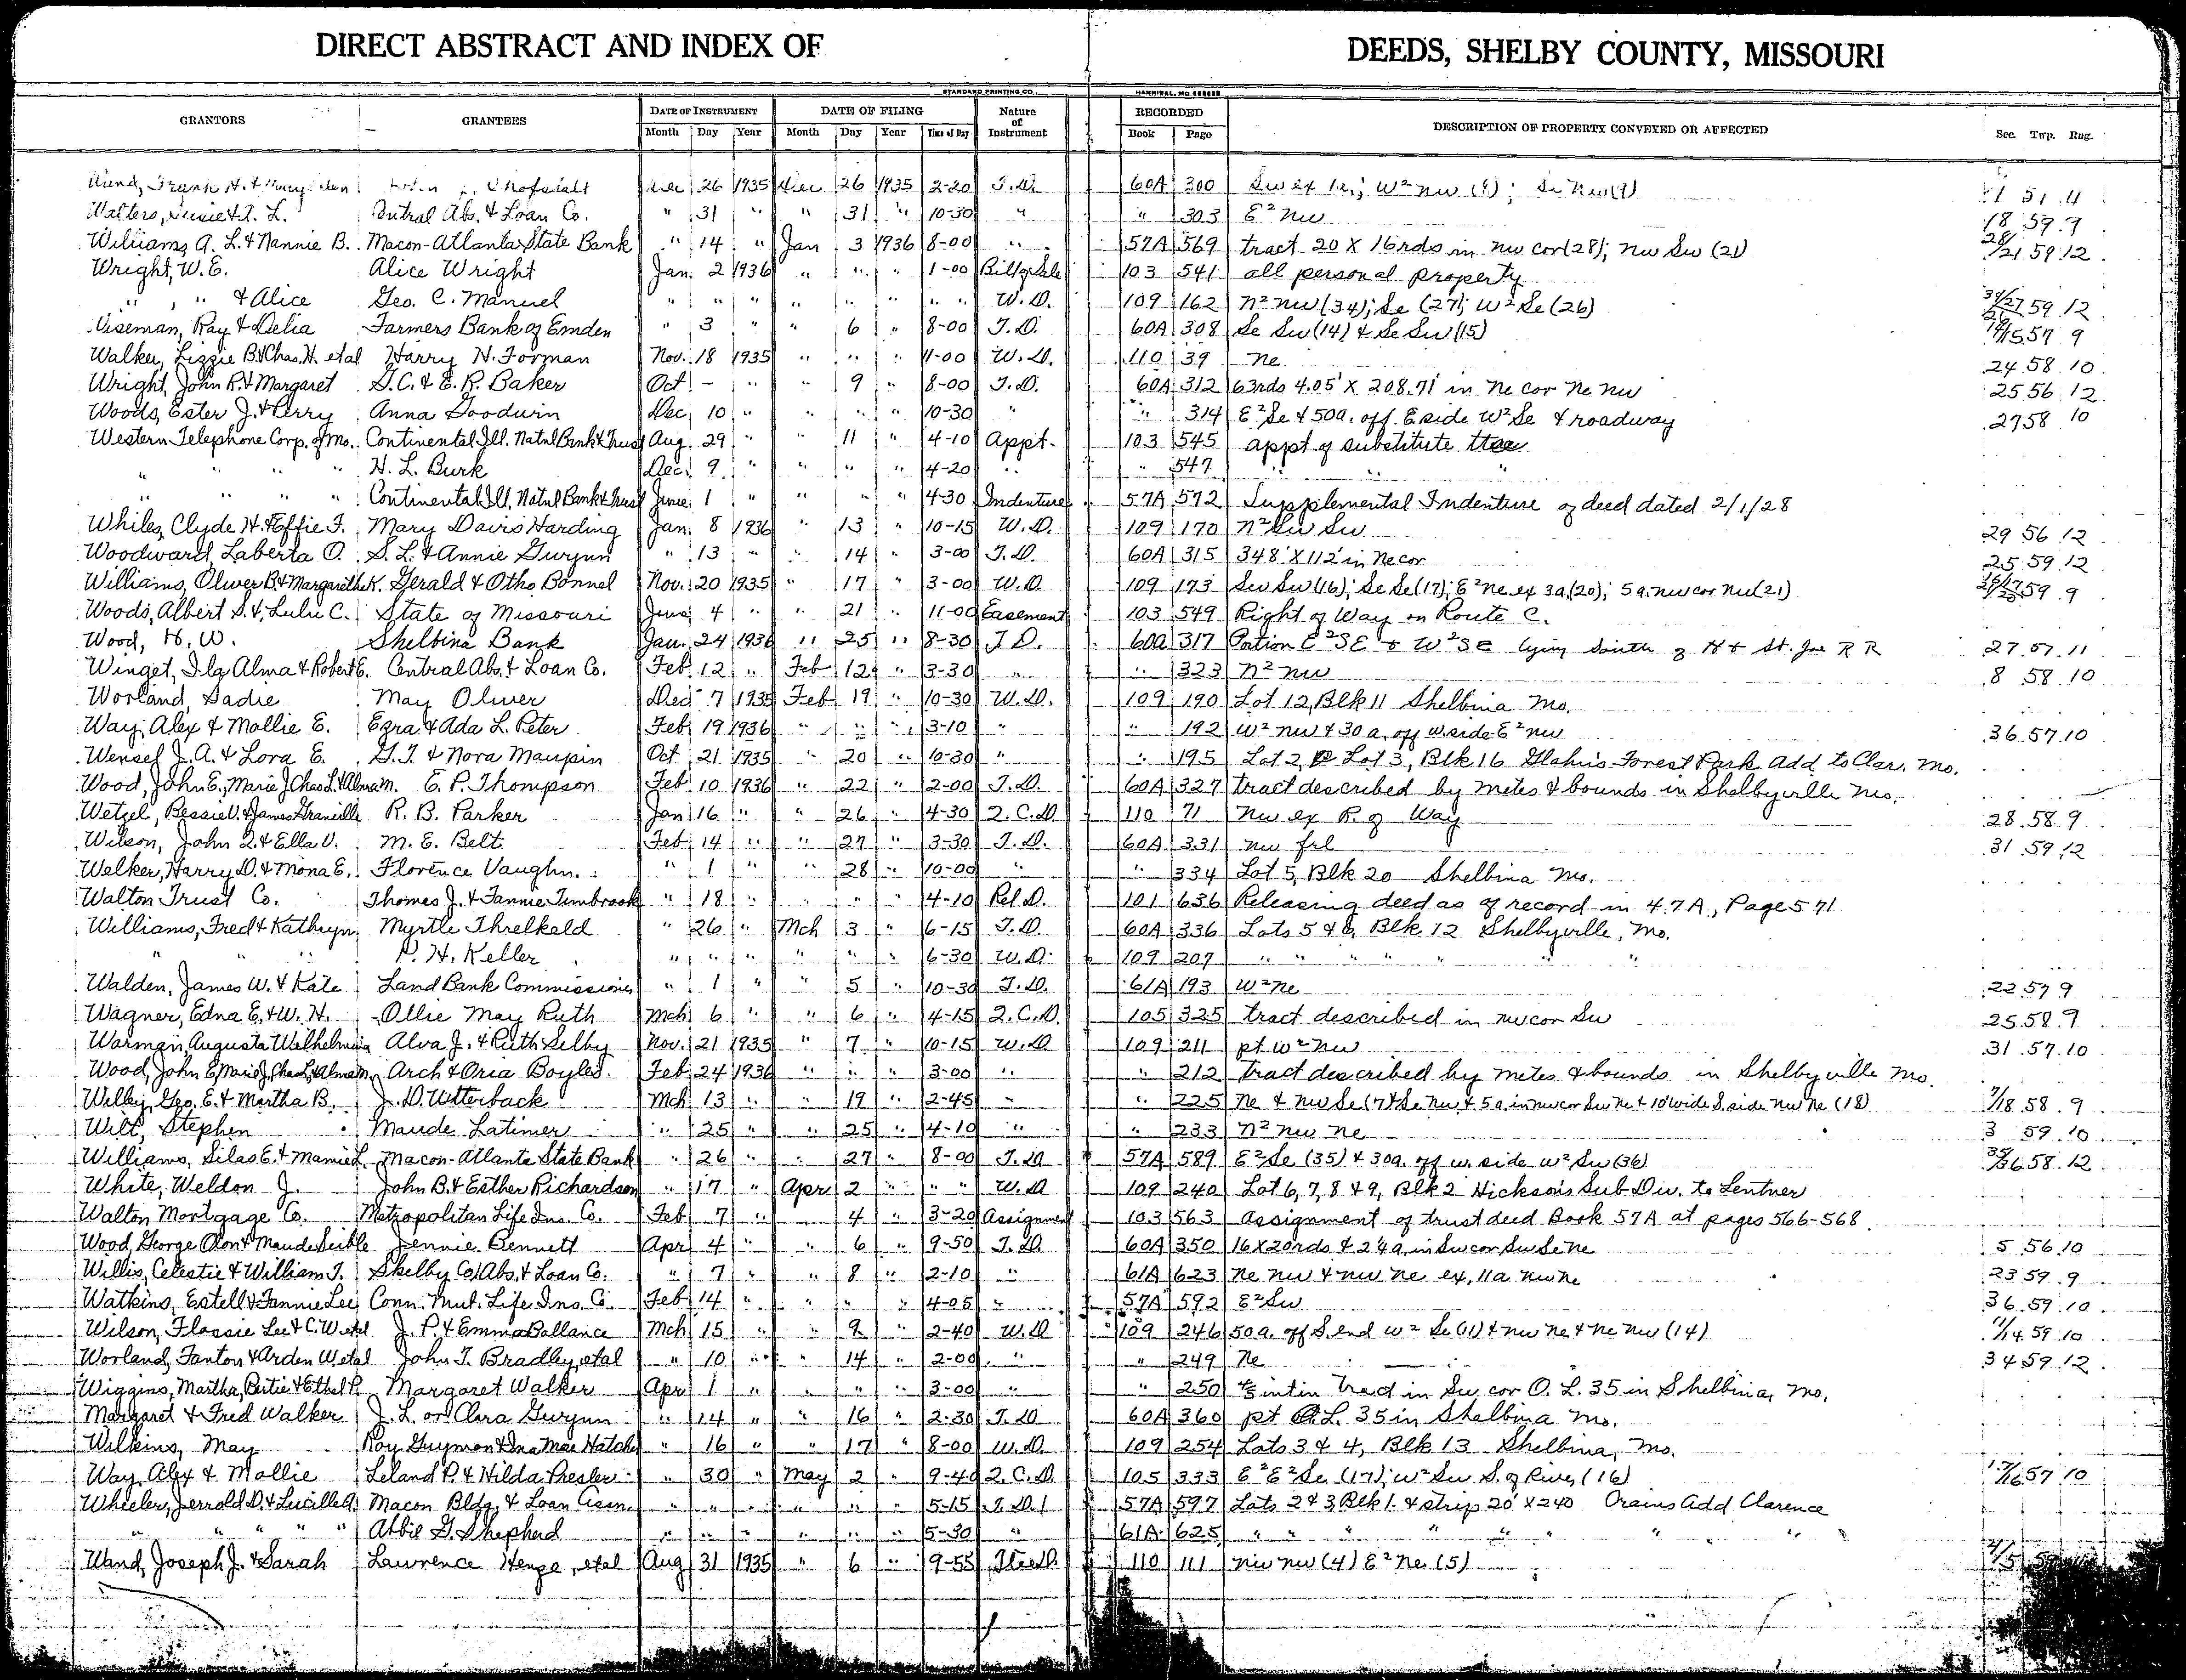 DIRECT ABSTRACT AND INDEX OF DEEDS, SHELBY COUNTY, MISSOURI
STANDARD PRINTING CO. HANNIBAL, MO
GRANTORS GRANTEES DATE OF INSTRUMENT DATE OF FILING Nature of Instrument RECORDED DESCRIPTION OF PROPERTY CONVEYED OR AFFECTED Sec. Twp. Rng.
Month Day Year Month Day Year Time of Day Book Page
Frank H. & 26 1935 Dec 26 1935 2-20 T.D. 60A 300 Sw ex W² nw
Walters, & T. L. Central Abs. & Loan Co. " 31 " " 31 " 10-30 " " 303 E² nw 18 59 9
Williams, A. L. & Nannie B. Macon-Atlanta State Bank " 14 " Jan 3 1936 8-00 " 57A 569 tract 20 X 16 rds in nw cor (28); nw Sw (21) 28/21 59 12
Wright, W. E. Alice Wright Jan 2 1936 " " " 1-00 Bill of Sale 103 541 all personal property
" , " & Alice Geo. C. Manuel " " " " " " " " W. D. 109 162 N² nw (34); Se (27); W² Se (26) 34/27 26 59 12
Wiseman, Ray & Delia Farmers Bank of Emden " 3 " " 6 " 8-00 T. D. 60A 308 Se Sw (14) & Se Sw (15) 14/15 57 9
Walker, Lizzie B. & Chas. H. etal Harry H. Forman Nov. 18 1935 " " " 11-00 W. D. 110 39 Ne 24 58 10
Wright, John R. & Margaret S. C. & E. R. Baker Oct - " " 9 " 8-00 T. D. 60A 312 63rds 4.05' X 208.71' in Ne cor Ne nw 25 56 12
Woods, Ester J. & Perry Anna Goodwin Dec 10 " " " " 10-30 " " 314 E² Se & 50a. off E side W² Se & roadway 27 58 10
Western Telephone Corp. of Mo. Continental Ill. Natnl Bank & Trust Aug 29 " " 11 " 4-10 Appt. 103 545 appt of substitute ttee
" " " " H. L. Burk Dec. 9 " " " " 4-20 " " 547 " " "
" " " " Continental Ill. Natnl Bank & Trust June 1 " " " " 4-30 Indenture 57A 572 Supplemental Indenture of deed dated 2/1/28
Whiles, Clyde H. & Effie F. Mary Davis Harding Jan. 8 1936 " 13 " 10-15 W. D. 109 170 N² Sw Sw 29 56 12
Woodward, Laberta O. S. L. & Annie Gwynn " 13 " " 14 " 3-00 T. D. 60A 315 348' X 112' in Ne cor 25 59 12
Williams, Oliver B. & Margarethe K. Gerald & Otho Bonnel Nov. 20 1935 " 17 " 3-00 W. D. 109 173 Sw Sw (16); Se Se (17); E² Ne ex 3a (20); 5a. nw cor Nw (21) 59 9
Woods, Albert S. & Lulu C. State of Missouri June 4 " " 21 " 11-00 Easement 103 549 Right of Way on Route C.
Wood, H. W. Shelbina Bank Jan. 24 1936 " 25 " 8-30 T D. 60a 317 Portion E² SE & W² SE lying South of H & St. Joe R R 27 57 11
Winget, Ila Alma & Robert E. Central Abs. & Loan Co. Feb 12 " Feb 12 " 3-30 " 323 N² nw 8 58 10
Worland, Sadie May Oliver Dec 7 1935 Feb 19 " 10-30 W. D. 109 190 Lot 12, Blk 11 Shelbina Mo.
Way, Alex & Mollie E. Ezra & Ada L. Peter Feb 19 1936 " " " 3-10 " " 192 W² nw & 30 a. off w side E² nw 36 57 10
Wensel J. A. & Lora E. G. T. & Nora Maupin Oct 21 1935 " 20 " 10-30 " " 195 Lot 2, Lot 3, Blk 16 Forest Park Add to Clar. Mo.
Wood, John E., Marie J. Chas L. & Alma M. E. P. Thompson Feb 10 1936 " 22 " 2-00 T. D. 60A 327 tract described by metes & bounds in Shelbyville Mo.
Wetzel, Bessie V. & James Granville R. B. Parker Jan 16 " " 26 " 4-30 Q. C. D. 110 71 Nw ex R. of Way 28 58 9
Wilson, John Q. & Ella V. M. E. Belt Feb 14 " " 27 " 3-30 T. D. 60A 331 nw frl 31 59 12
Welker, Harry D. & Mona E. Florence Vaughn " 1 " " 28 " 10-00 " " 334 Lot 5, Blk 20 Shelbina Mo.
Walton Trust Co. Thomas J. & Fannie Timbrook " 18 " " " " 4-10 Rel. D. 101 636 Releasing deed as of record in 47A, Page 571
Williams, Fred & Kathryn Myrtle Threlkeld " 26 " Mch 3 " 6-15 T. D. 60A 336 Lots 5 & 6, Blk 12 Shelbyville, Mo.
" " " P. H. Keller " " " " " " 6-30 W. D. 109 207 " " " " " "
Walden, James W. & Kate Land Bank Commissioner " 1 " " 5 " 10-30 T. D. 61A 193 W² Ne 22 57 9
Wagner, Edna E. & W. H. Ollie May Ruth Mch 6 " " 6 " 4-15 Q. C. D. 105 325 tract described in nw cor Sw 25 58 9
Warman, Augusta Wilhelmina Alva J. & Ruth Selby Nov. 21 1935 " 7 " 10-15 W. D 109 211 pt W² nw 31 57 10
Wood, John E, Marie J, Chas L, & Alma M. Arch & Oria Boyles Feb 24 1936 " " " 3-00 " " 212 tract described by metes & bounds in Shelbyville Mo.
Willey, Geo. E. & Martha B. J. D. Utterback Mch 13 " " 19 " 2-45 " " 225 Ne & nw Se (7) & Se nw & 5a. in nw cor Sw Ne & 10' wide S. side nw Ne (18) 7/18 58 9
Wilt, Stephen Maude Latimer " 25 " " 25 " 4-10 " " 233 N² nw ne 3 59 10
Williams, Silas E. & Mamie L. Macon-Atlanta State Bank " 26 " " 27 " 8-00 T. D 57A 589 E² Se (35) & 30a. off w. side W² Sw (36) 35/36 58 12
White, Weldon J. John B. & Esther Richardson " 17 " Apr 2 " " " W. D 109 240 Lot 6, 7, 8 & 9, Blk 2 Hickson's Sub Div. to Lentner
Walton Mortgage Co. Metropolitan Life Ins. Co. Feb 7 " " 4 " 3-20 Assignment 103 563 Assignment of trust deed Book 57A at pages 566-568
Wood, George Olon & Maude Seible Jennie Bennett Apr 4 " " 6 " 9-50 T. D. 60A 350 16 X 20 rds & 24a. in Sw cor Sw Se Ne 5 56 10
Willis, Celestie & William T. Shelby Co. Abs. & Loan Co. " 7 " " 8 " 2-10 " 61A 623 Ne nw & nw ne ex. 11a nw ne 23 59 9
Watkins, Estell & Fannie Lee Conn. Mut. Life Ins. Co. Feb 14 " " " " 4-05 " 57A 592 E² Sw 36 59 10
Wilson, Flossie Lee & C. W. etal J. P. & Emma Ballance Mch 15 " " 9 " 2-40 W. D 109 246 50a. off S. end W² Se (11) & nw ne & ne nw (14) 11/14 59 10
Worland, Fanton & Arden W. etal John T. Bradley, etal " 10 " " 14 " 2-00 " " 249 Ne 34 59 12
Wiggins, Martha, Bertie & Ethel P. Margaret Walker Apr 1 " " " " 3-00 " " 250 int in tract in Sw cor O. L. 35 in Shelbina, Mo.
Margaret & Fred Walker J. L. or Clara Gwynn " 14 " " 16 " 2-30 T. D 60A 360 pt O.L. 35 in Shelbina Mo.
Wilkins, May Roy Guymon & Ina Mae Hatcher " 16 " " 17 " 8-00 W. D. 109 254 Lots 3 & 4, Blk 13 Shelbina, Mo.
Way, Alex & Mollie Leland P. & Hilda Presler " 30 " May 2 " 9-40 Q. C. D. 105 333 E² E² Se (17); W² Sw S. of River (16) 17/16 57 10
Wheeler, Jerrold D. & Lucille A. Macon Bldg. & Loan Assn. " " " " " " 5-15 T. D. 57A 597 Lots 2 & 3, Blk 1. & strip 20' X 240 Crains Add Clarence
" " " " Abbie G. Shepherd " " " " " " 5-30 " 61A 625 " " " " " " "
Wand, Joseph J. & Sarah Lawrence Henze, etal Aug 31 1935 " 6 " 9-55 110 111 nw nw (4) E² Ne (5) 4/5 59